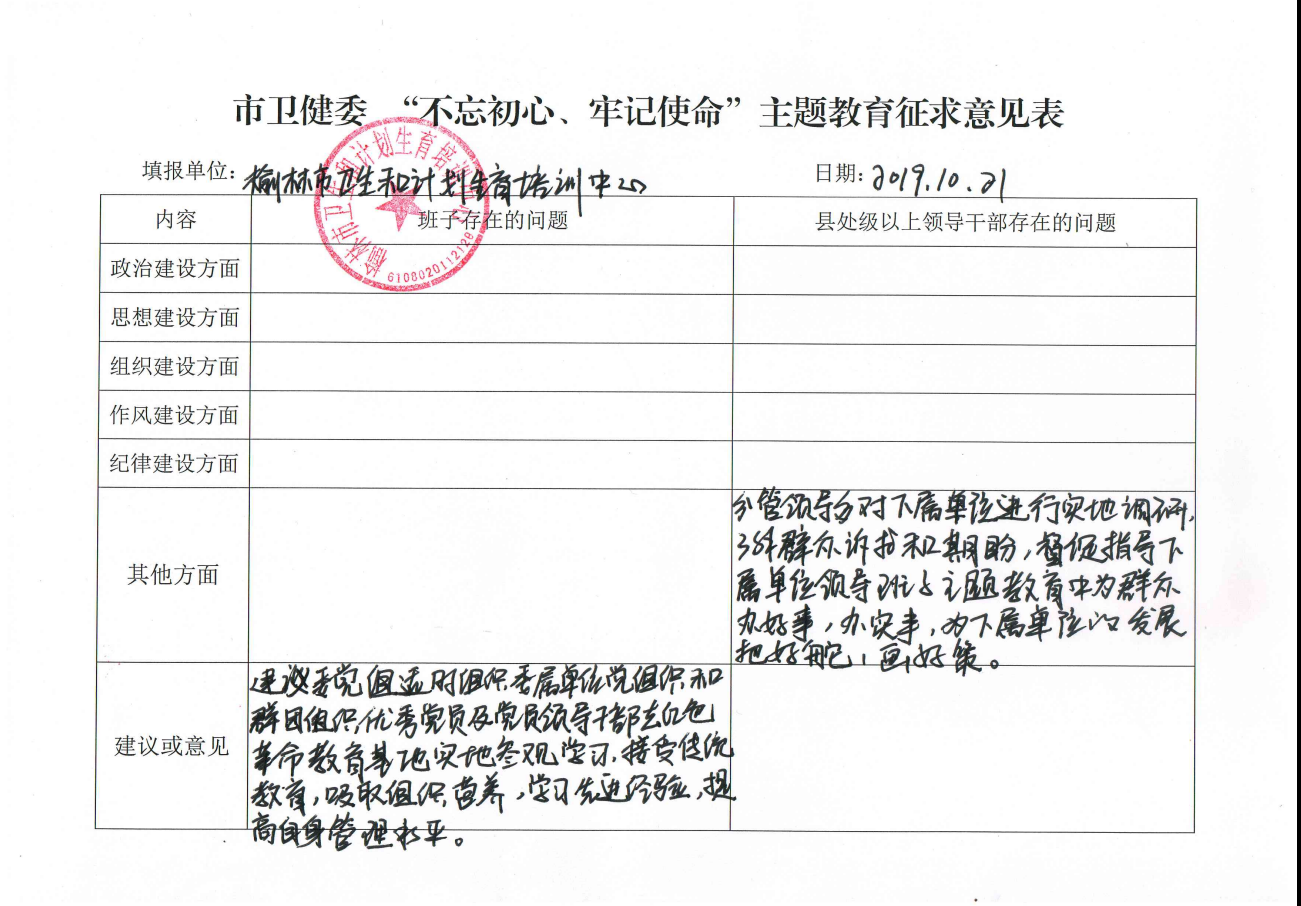 市卫健委 “不忘初心、牢记使命”主题教育征求意见表
填报单位：榆林市卫生和计划生育培训中心
日期：2019.10.21
榆林市卫生和计划生育培训中心
6108020112129
内容 班子存在的问题 县处级以上领导干部存在的问题
政治建设方面
思想建设方面
组织建设方面
作风建设方面
纪律建设方面
其他方面
分管领导多对下属单位进行实地调研，
了解群众诉求和期盼，督促指导下
属单位领导班子主题教育中为群众
办好事，办实事，为下属单位的发展
把好舵，画好策。
建议或意见
建议委党组适时组织委属单位党组织和
群团组织优秀党员及党员领导干部去红色
革命教育基地实地参观学习，接受传统
教育，吸取组织营养，学习先进经验，提
高自身管理水平。